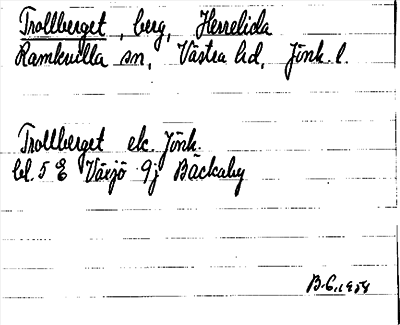 Trollberget, berg, Herrelida
Ramkvilla sn, Västra hd, Jönk. l.
Trollberget ek. Jönk.
bl. 5 E Växjö 9j Bäckaby
B.G. 1954